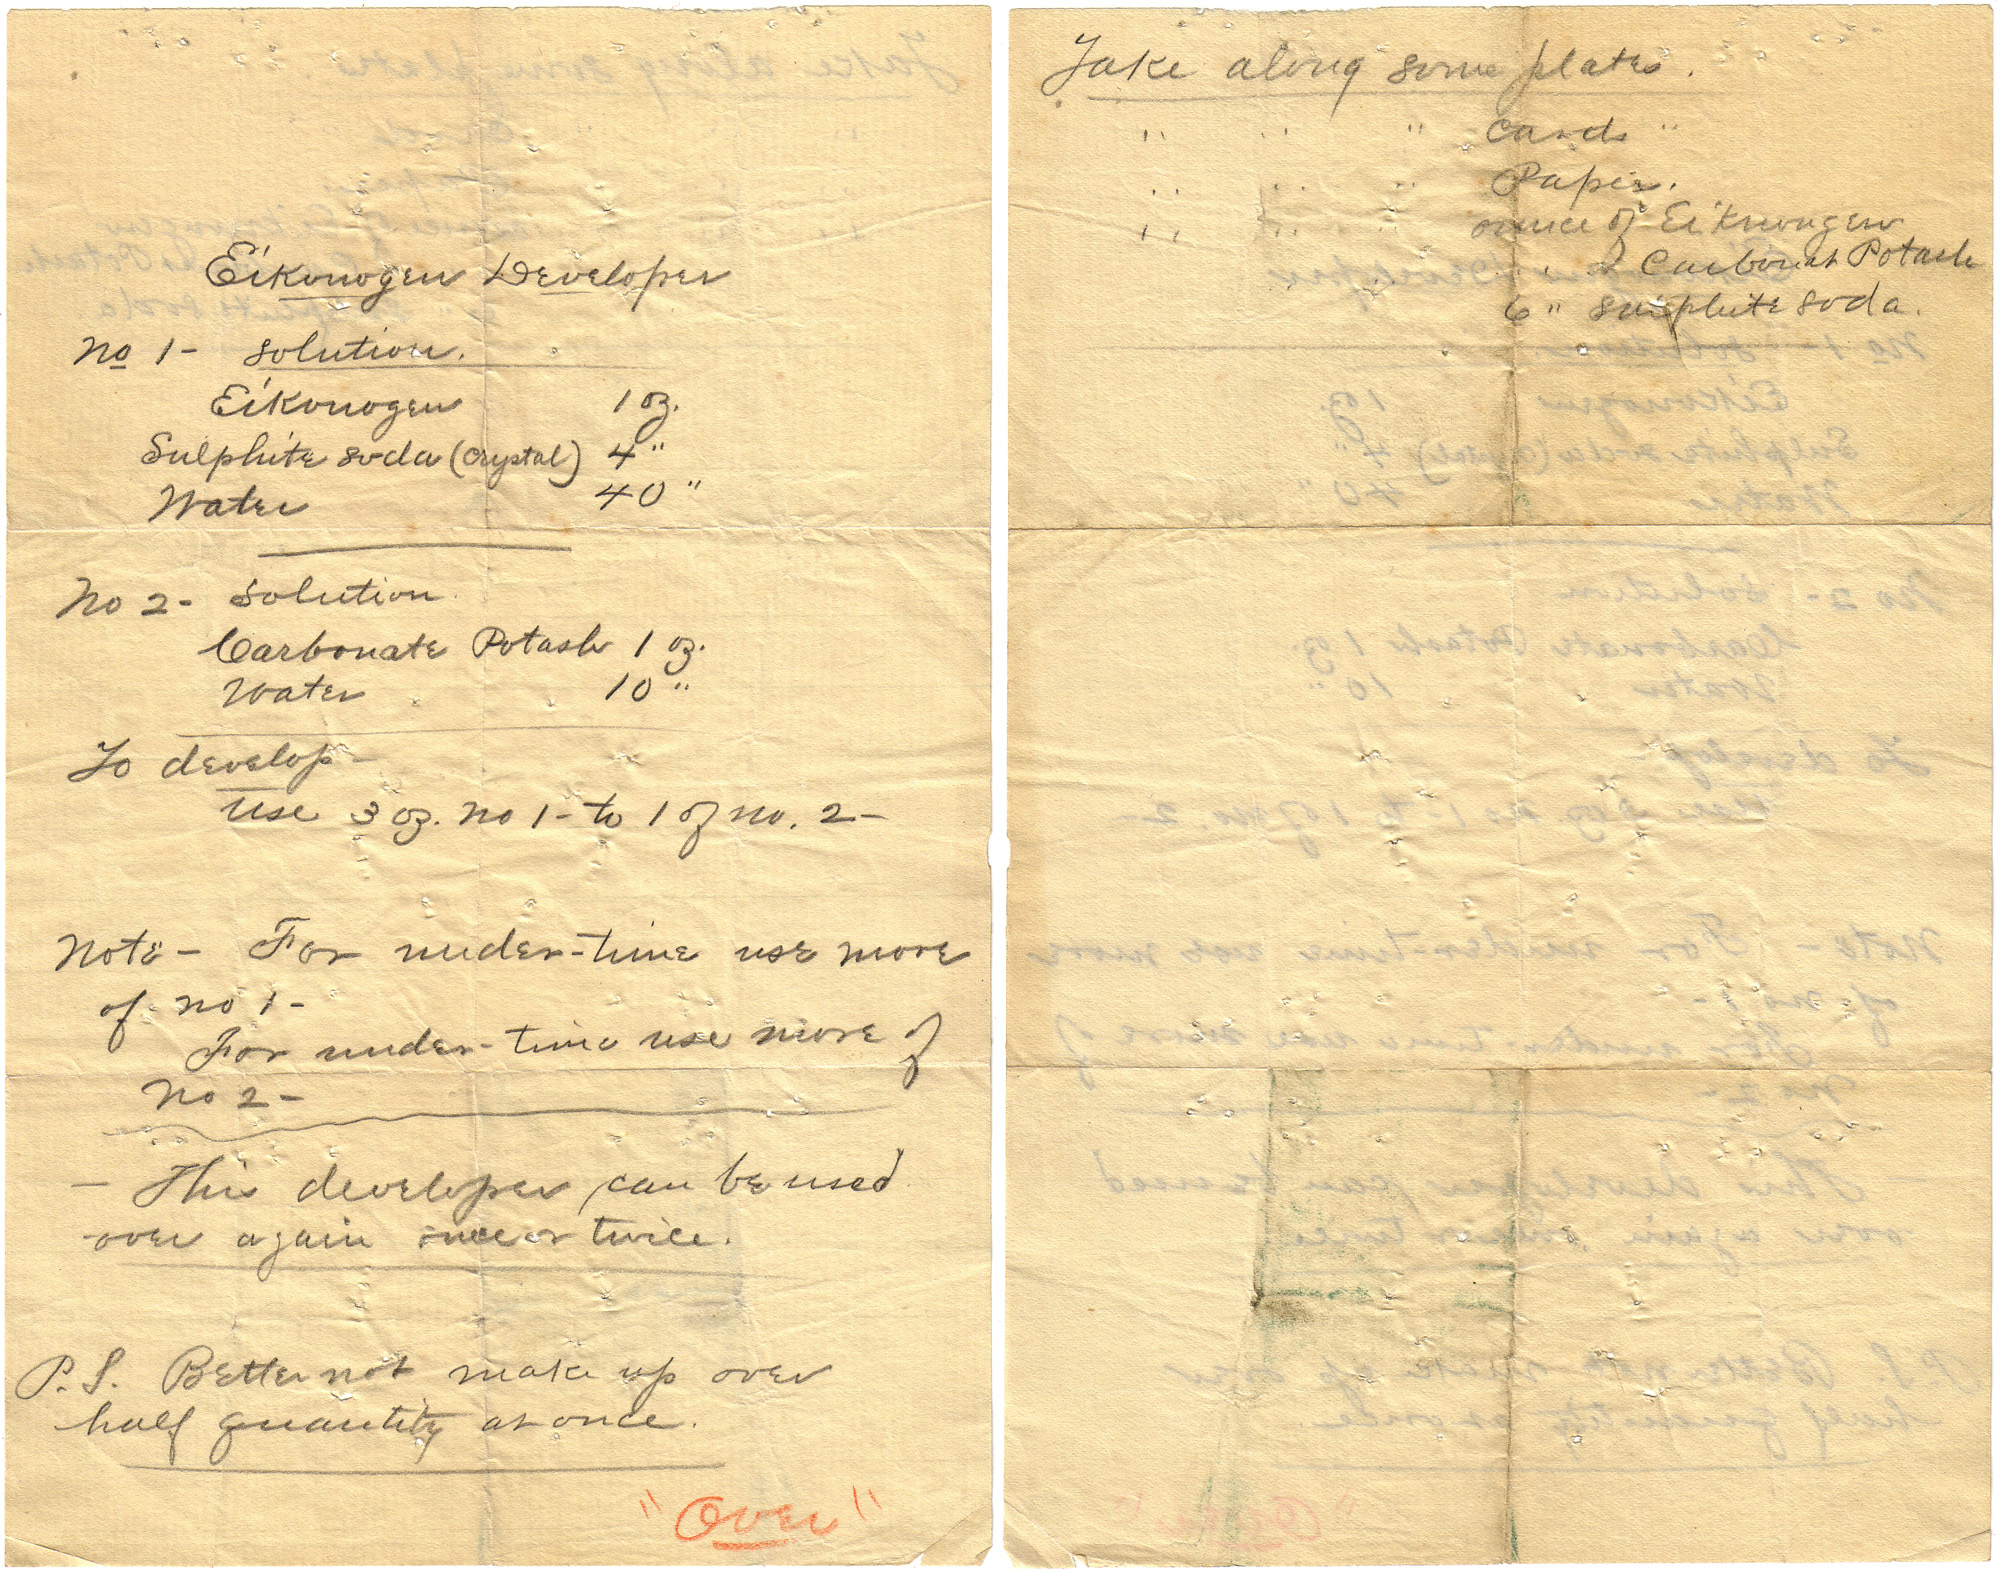 Eikonogen Developer
No 1- solution.
Eikonogen 1 oz.
Sulphite soda (crystal) 4 "
Water 40 "
No 2- solution.
Carbonate Potash 1 oz.
Water 10 "
To develop-
use 3 oz. no 1- to 1 of no. 2-
Note- For under-time use more
of no 1-
For under-time use more of
no 2-
- This developer can be used
over again once or twice.
P.S. Better not make up over
half quantity at once.
"Over"
Take along some plates.
" " " cards "
" " " Paper.
" " " ounce of Eikonogen
" " " of Carbonat Potash
6 " sulphite soda.